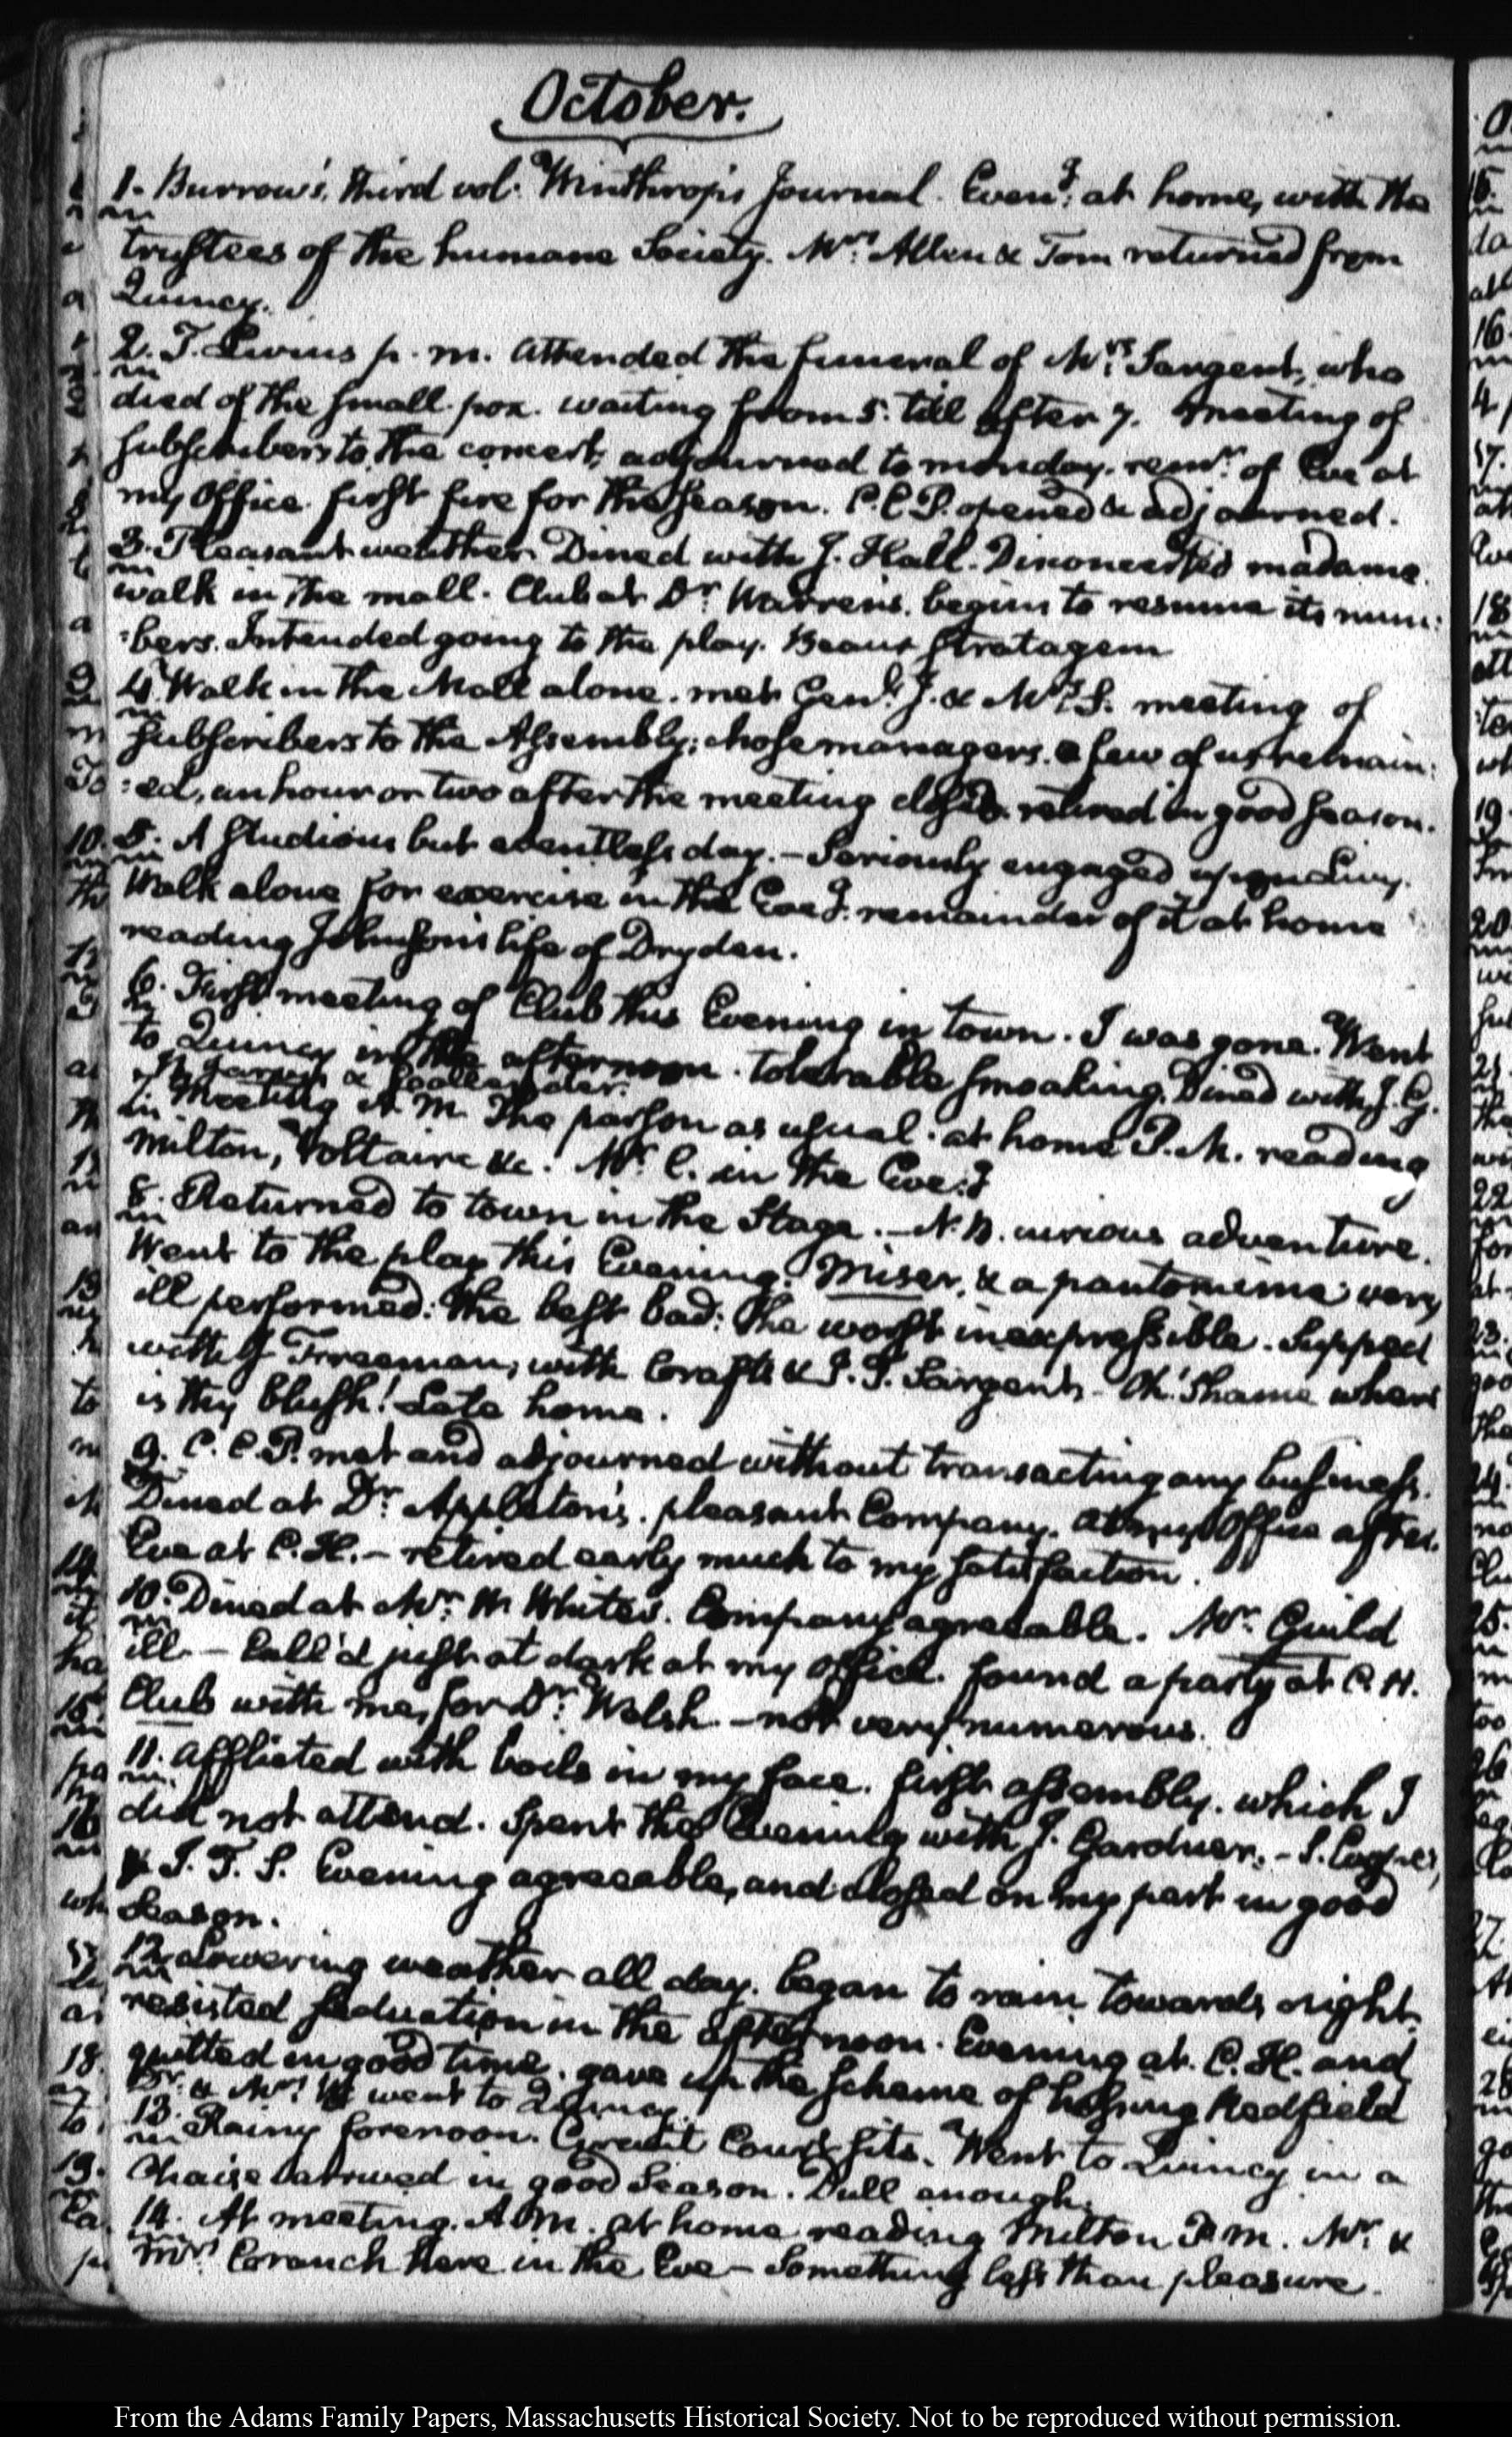 October.
1. Burrow's, third vol. Winthrop's Journal. Eveng. at home, with the
trustees of the humane Society. Mrs. Allen & Tom returned from
Quincy.
2. T. Livius p.m. attended the funeral of Mrs. Sargent, who
died of the small-pox. waiting from 5. till after 7. meeting of
subscribers to the concert; adjourned to monday. remr. of Eve at
my Office. first fire for the season. C.C.P. opened & adjourned.
3. Pleasant weather. Dined with J. Hall. Disconcerted madame
walk in the mall. Club at Dr. Warren's. begins to resume its num:
:bers. Intended going to the play. Beaux Stratagem
4. Walk in the Mall alone. met Genl. J. & Mrs. S. meeting of
subscribers to the Assembly; chose managers. a few of us remain:
:ed, an hour or two after the meeting closed. retired in good season.
5. A studious but eventless day. — Seriously engaged upon Livy.
Walk alone for exercise in the Eveg. remainder of it at home
reading Johnson's life of Dryden.
6. First meeting of Club this Evening in town. I was gone. Went
to Quincy in the afternoon. tolerable smoaking. Dined with J. G.
Meeting A.M. The parson as usual. at home P.M. reading
Milton, Voltaire &c. Mr. C. in the Eve:g
8. Returned to town in the Stage. — N.B. curious adventure.
Went to the play this Evening. Miser, & a pantomime; very
ill performed: the best bad: the worst inexpressible. Supped
with J Freeman, with Crafts & J. T. Sargent — Oh! Shame where
is thy blush! Late home.
9. C.C.P. met and adjourned without transacting any business.
Dined at Dr. Appleton's. pleasant Company. at my Office after.
Eve at C.H. — retired early much to my satisfaction.
10. Dined at Mr. W. White's. Company agreeable. Mr. Guild
ill — Call'd just at dark at my office. found a party at C.H.
Club with me, for Dr. Welsh. — not very numerous.
11. afflicted with boils in my face. first assembly. which I
did not attend. Spent the Evening with J. Gardner. — S. Cooper,
& J. T. S. Evening agreeable, and closed on my part in good
Season.
12. Lowering weather all day. began to rain towards night.
resisted seduction in the afternoon. Evening at C.H. and
quitted in good time. gave up the scheme of Medfield
Dr. & Mrs. W went to Quincy.
13. Rainy forenoon. Circuit Court sits. Went to Quincy in a
Chaise arrived in good Season. Dull enough.
14. At meeting. A.M. at home reading Milton P.M. Mr. &
Mrs. Cranch here in the Eve — Something less than pleasure.
From the Adams Family Papers, Massachusetts Historical Society. Not to be reproduced without permission.